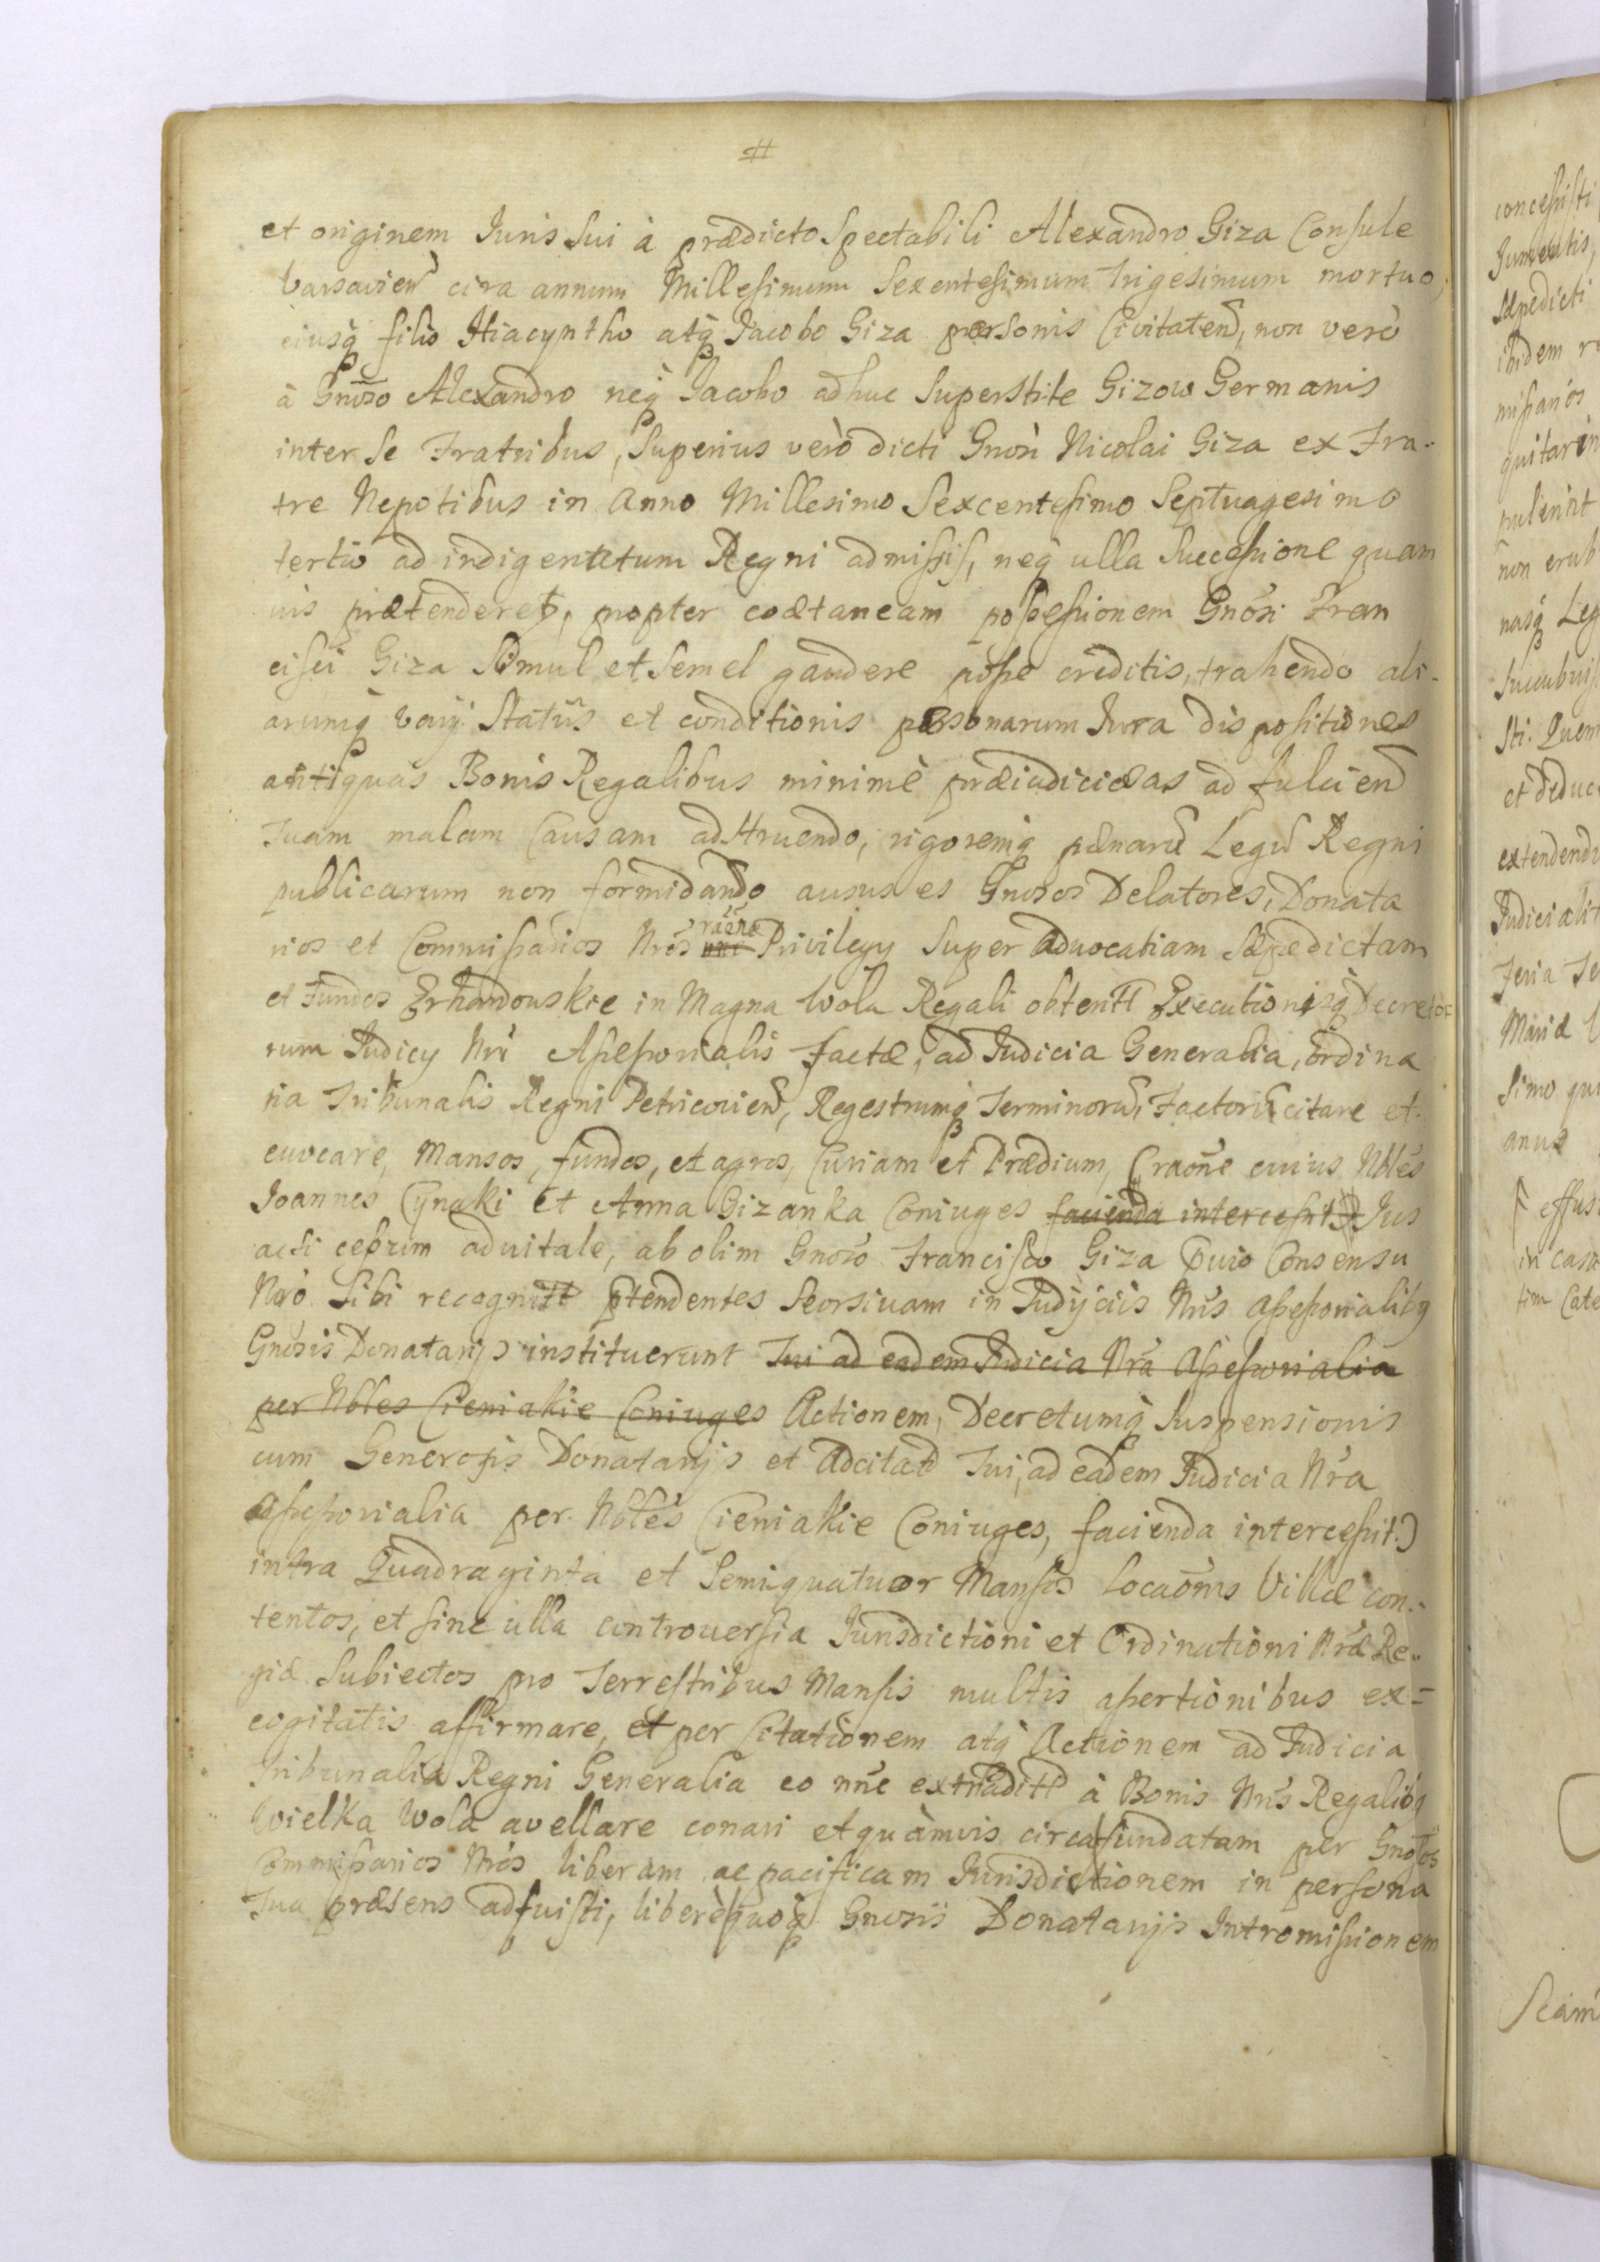 #
et originem Juris Sui à prædicto Spectabili Alexandro Giza Consule
Varsavien̄ circa annum Millesimum Sexentesimum Trigesimum mortuo,
eiusq̃ filio Hiacyntho atq̃ Jacobo Giza personis Civitaten̄, non verò
à Gnõso Alexandro neq̃ Jacobo adhuc Superstite Gizow Germanis
inter Se Fratribus, Superius verò dicti Gnõsi Nicolai Giza ex Fra-
tre Nepotibus in Anno Millesimo Sexcentesimo Septuagesimo
tertio ad indigenatum Regni admissis, neq̃ ulla Successione quam
uis prætenderet, propter coætaneam possessionem Gnõsi Fran
cisci Giza Simul et Semel gaudere posse creditis, trahendo ali-
arumq̃ varij Statūs et conditionis personarum Jura dispositiones
antiquas Bonis Regalibus minimè præiudiciosas ad fulcien̄
Tuam malam Causam adstruendo, rigoremq̃ pænarū Legū Regni
publicarum non formidando ausus es Gnosos Delatores, Donata
rios et Commissarios Nrõs raõne Privilegy Super Advocatiam Sæpedictam
et Fundos Erhardowskie in Magna Wola Regali obtentt Executionisq̃ Decreto
rum Judicy Nri Assessorialis factæ, ad Judicia Generalia, ordina
ria Tribunalis Regni Petricovien̄, Regestrumq̃ Terminorū, Factorū citare et
euocare, Mansos, fundos, et agros, Curiam et Prædium, (raõne cuius Nbles
Joannes Cynaki et Anna Gizanka Coniuges facienda intercessit) Jus
acsi ceptum aduitale, ab olim Gnõso Francisco Giza puio Consensu
Nrõ Sibi recognitt ptendentes Seorsiuam in Judijcijs Nris Assessorialibq
Gnosis Donatarijs instituerunt Tui ad eadem Judicia Nra Assessorialia
per Nbles Cieniakie Coniuges Actionem, Decretumq̃ Suspensionis
cum Generosis Donatarijs et Adcitatt Tui, ad eadem Judicia Nra
Assessorialia per Nbles Cieniakie Coniuges, facienda intercessit.)
intra Quadraginta et Semiquatuor Mansos locaõnis Villæ con-
tentos, et sine ulla controuersia Jurisdictioni et Ordinationi Nræ Re-
giæ Subiectos pro Terrestribus Mansis multis assertionibus ex-
cogitatis affirmare, et per Citationem atq̃ Actionem ad Judicia
Tribunalia Regni Generalia eo nūc extraditt à Bonis Nris Regalibq
Wielka Wola avellare conari et quàmvis circa fundatam per Gnosos
Commissarios Nrõs liberam ac pacificam Jurisdictionem in persona
Tua præsens adfuisti, liberèquoq̃ Gnosis Donatarijs Intromissionem